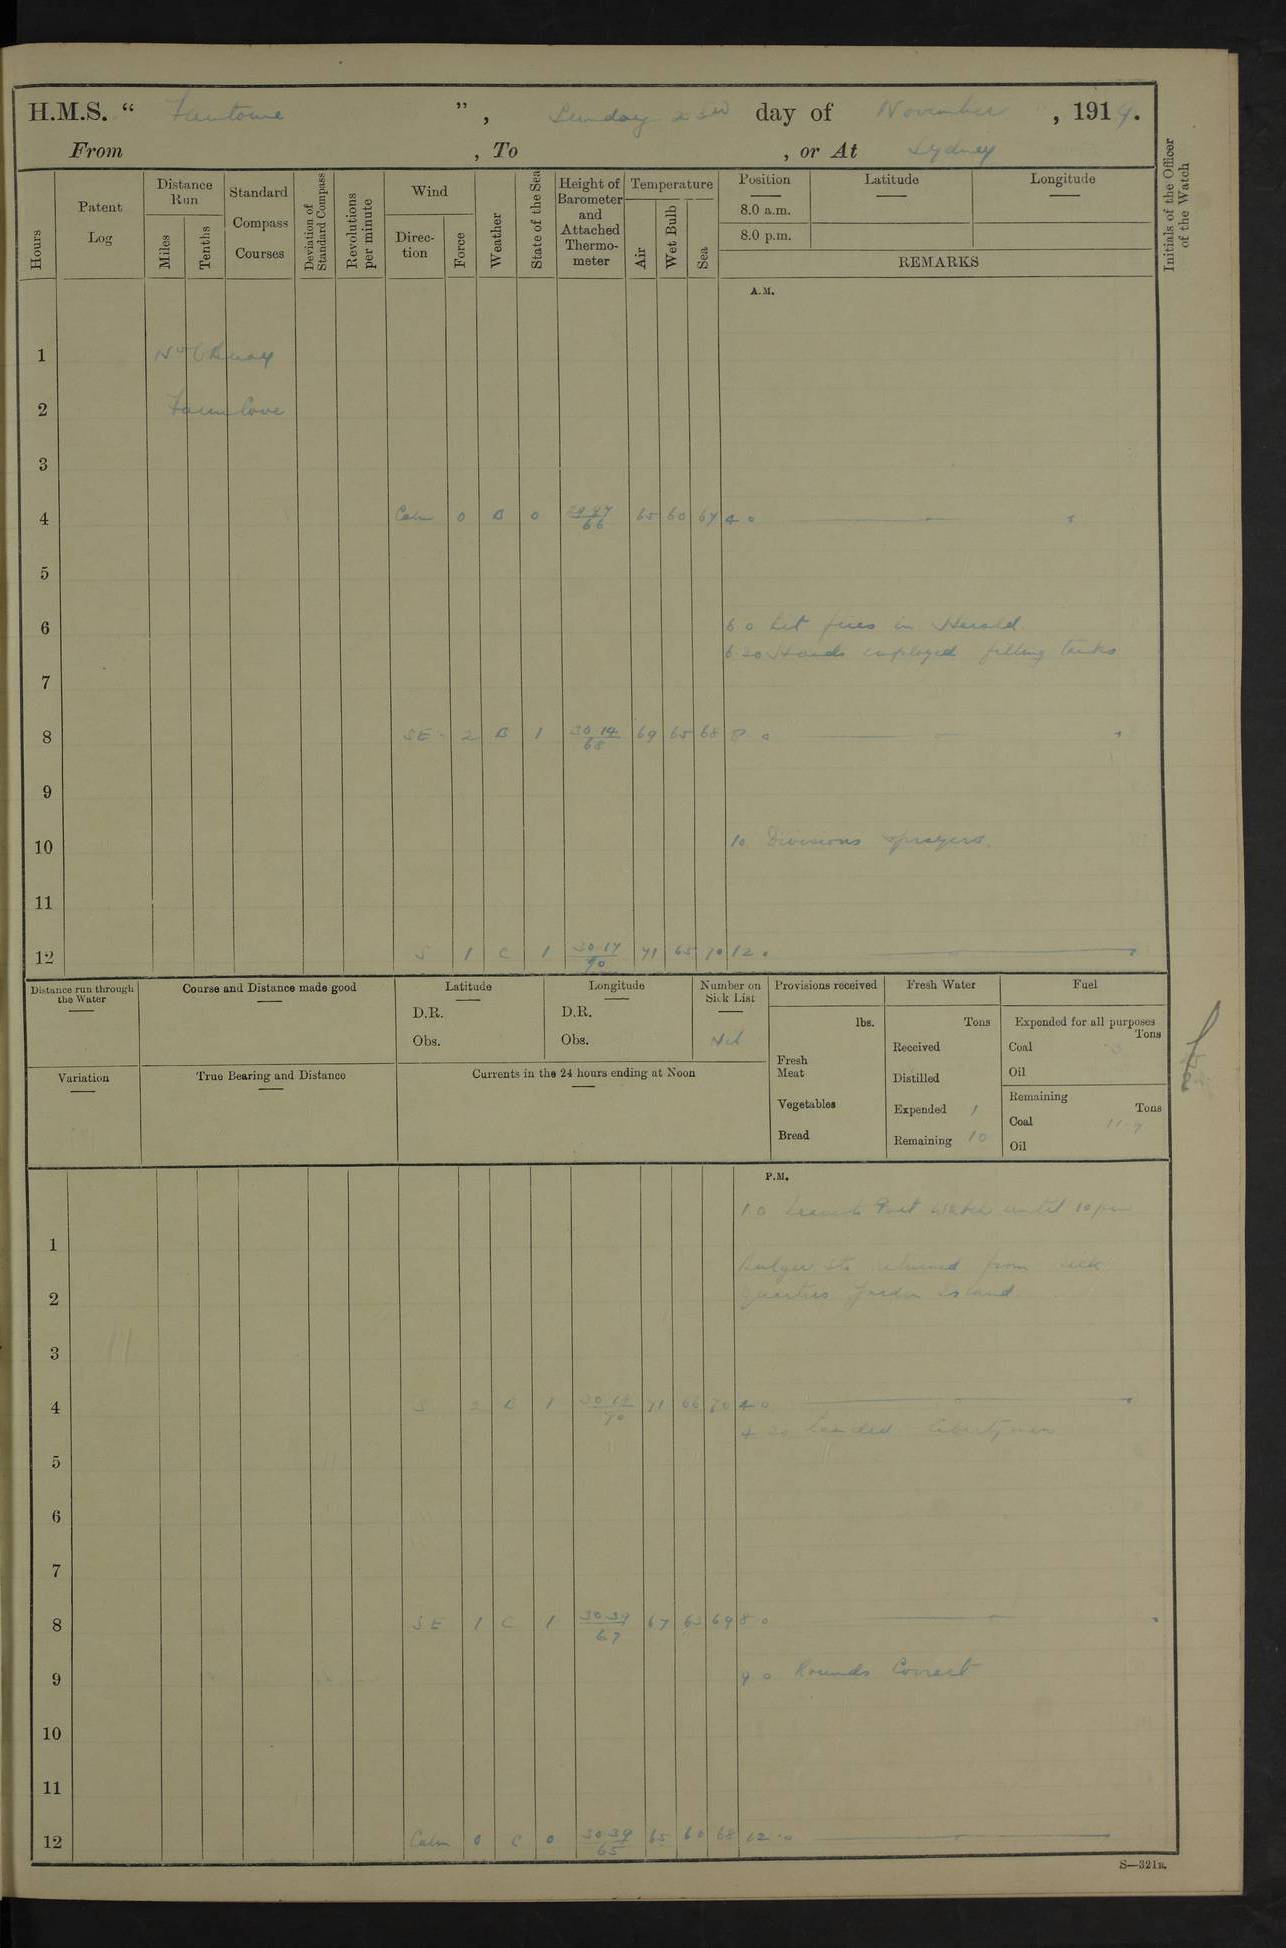 H.M.S. “ Fantome ”, Sunday 23rd day of November, 1919.
From , To , or At Sydney
Hours
Patent Log
Distance Run
Miles
Tenths
Standard Compass Courses
Deviation of Standard Compass
Revolutions per minute
Wind
Direction
Force
Weather
State of the Sea
Height of Barometer and Attached Thermometer
Temperature
Air
Wet Bulb
Sea
Position
8.0 a.m.
8.0 p.m.
Latitude
Longitude
REMARKS
Initials of the Officer of the Watch
A.M.
1 No 6 Buoy
2 Farm Cove
3
4 Calm 0 B 0 66 65 60 67 4 0
5
6 6 0 Lit fires in Herald
6 20 Hands employed filling tanks
7
8 SE 2 B 1 30 14 68 69 65 68 8 0
9
10 10 Divisions & prayers
11
12 S 1 C 1 30 17 70 71 65 70 12 0
Distance run through the Water
Course and Distance made good
Latitude
D.R.
Obs.
Longitude
D.R.
Obs.
Number on Sick List
Nil
Provisions received
lbs.
Fresh Meat
Vegetables
Bread
Fresh Water
Tons
Received
Distilled
Expended 1
Remaining 10
Fuel
Expended for all purposes
Tons
Coal
Oil
Remaining
Tons
Coal
Oil
Variation
True Bearing and Distance
Currents in the 24 hours ending at Noon
P.M.
1 0 Leave to Port Watch until 10 pm
1
returned from sick
2 quarters Garden Island
3
4 S 2 B 1 70 71 66 70 4 0
4 30 Landed libertymen
5
6
7
8 SE 1 C 1 30.39 67 67 63 69 8 0
9 9 0 Rounds Correct
10
11
12 Calm 0 C 0 30 39 65 65 60 68 12.0
S—321B.